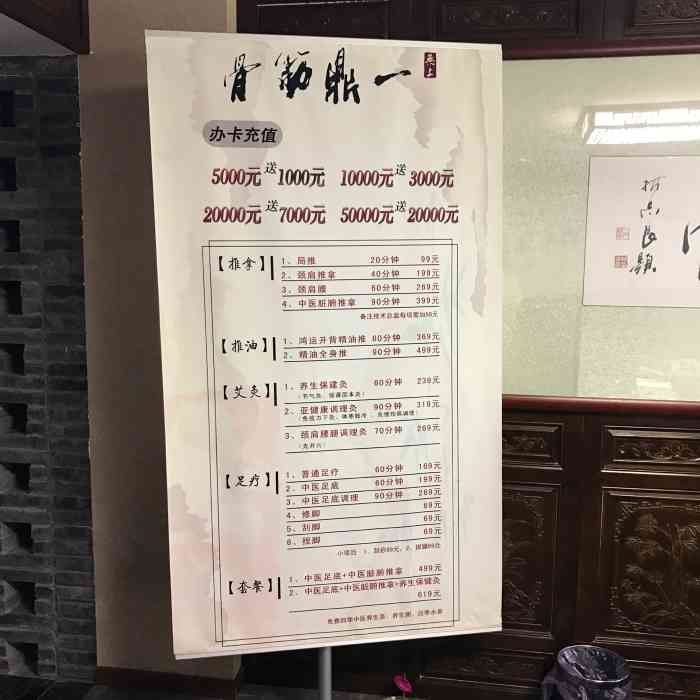 骨筋鼎一
无上
办卡充值
5000元送1000元 10000元送3000元
20000元送7000元 50000元送20000元
【推拿】
1、局推 20分钟 99元
2、颈肩推拿 40分钟 199元
3、颈肩腰 60分钟 269元
4、中医脏腑推拿 90分钟 399元
【推油】
1、鸿运开背精油推 60分钟 369元
2、精油全身推 90分钟 499元
【艾灸】
1、养生保健灸 60分钟 239元
2、亚健康调理灸 90分钟 319元
3、颈肩腰腿调理灸 70分钟 269元
【足疗】
1、普通足疗 60分钟 169元
2、中医足底 60分钟 199元
3、中医足底调理 90分钟 269元
4、修脚 69元
5、刮脚 69元
6、捏脚 69元
【套餐】
1、中医足底+中医脏腑推拿 499元
2、中医足底+中医脏腑推拿+养生保健灸
619元